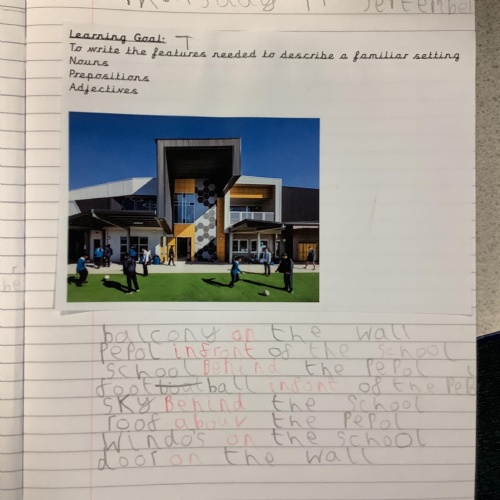 Thursday 17 September
Learning Goal: T
To write the features needed to describe a familiar setting
Nouns
Prepositions
Adjectives
balcony on the wall
PePol infront of the school
School Behind the PePol
football infront of the PeP
SKY Behind the School
roof abouv the PePol
Windos on the school
door on the wall